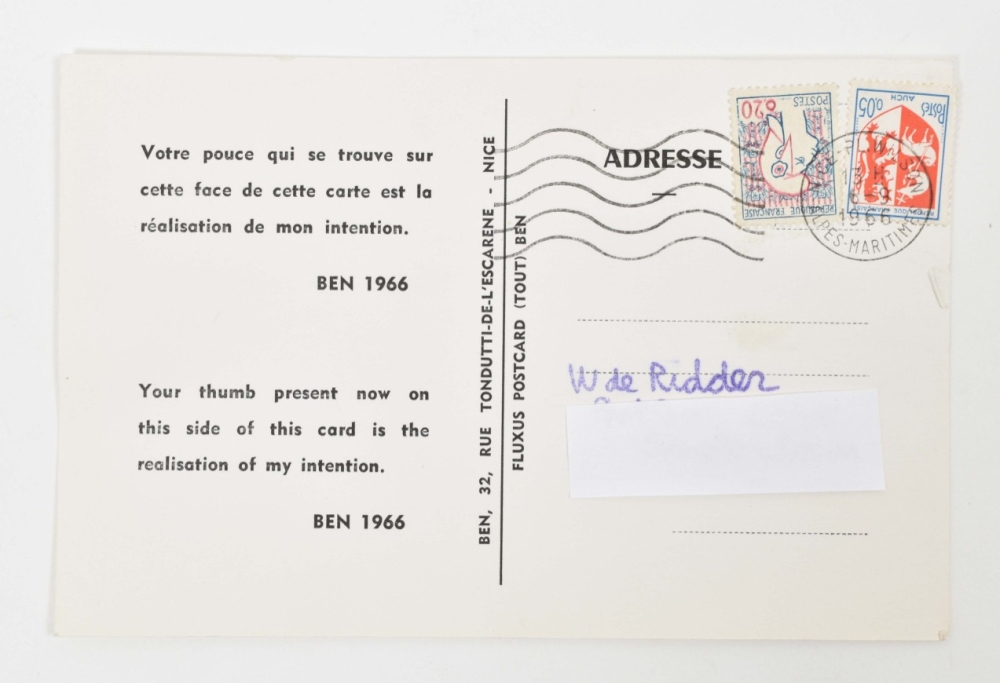 Votre pouce qui se trouve sur
cette face de cette carte est la
réalisation de mon intention.
BEN 1966
Your thumb present now on
this side of this card is the
realisation of my intention.
BEN 1966
BEN, 32, RUE TONDUTTI-DE-L'ESCARENE - NICE
FLUXUS POSTCARD (TOUT) BEN
ADRESSE
0,20
POSTES
REPUBLIQUE FRANÇAISE
0,05
POSTES
AUCH
REPUBLIQUE FRANÇAISE
1966
ALPES-MARITIMES
W de Ridder